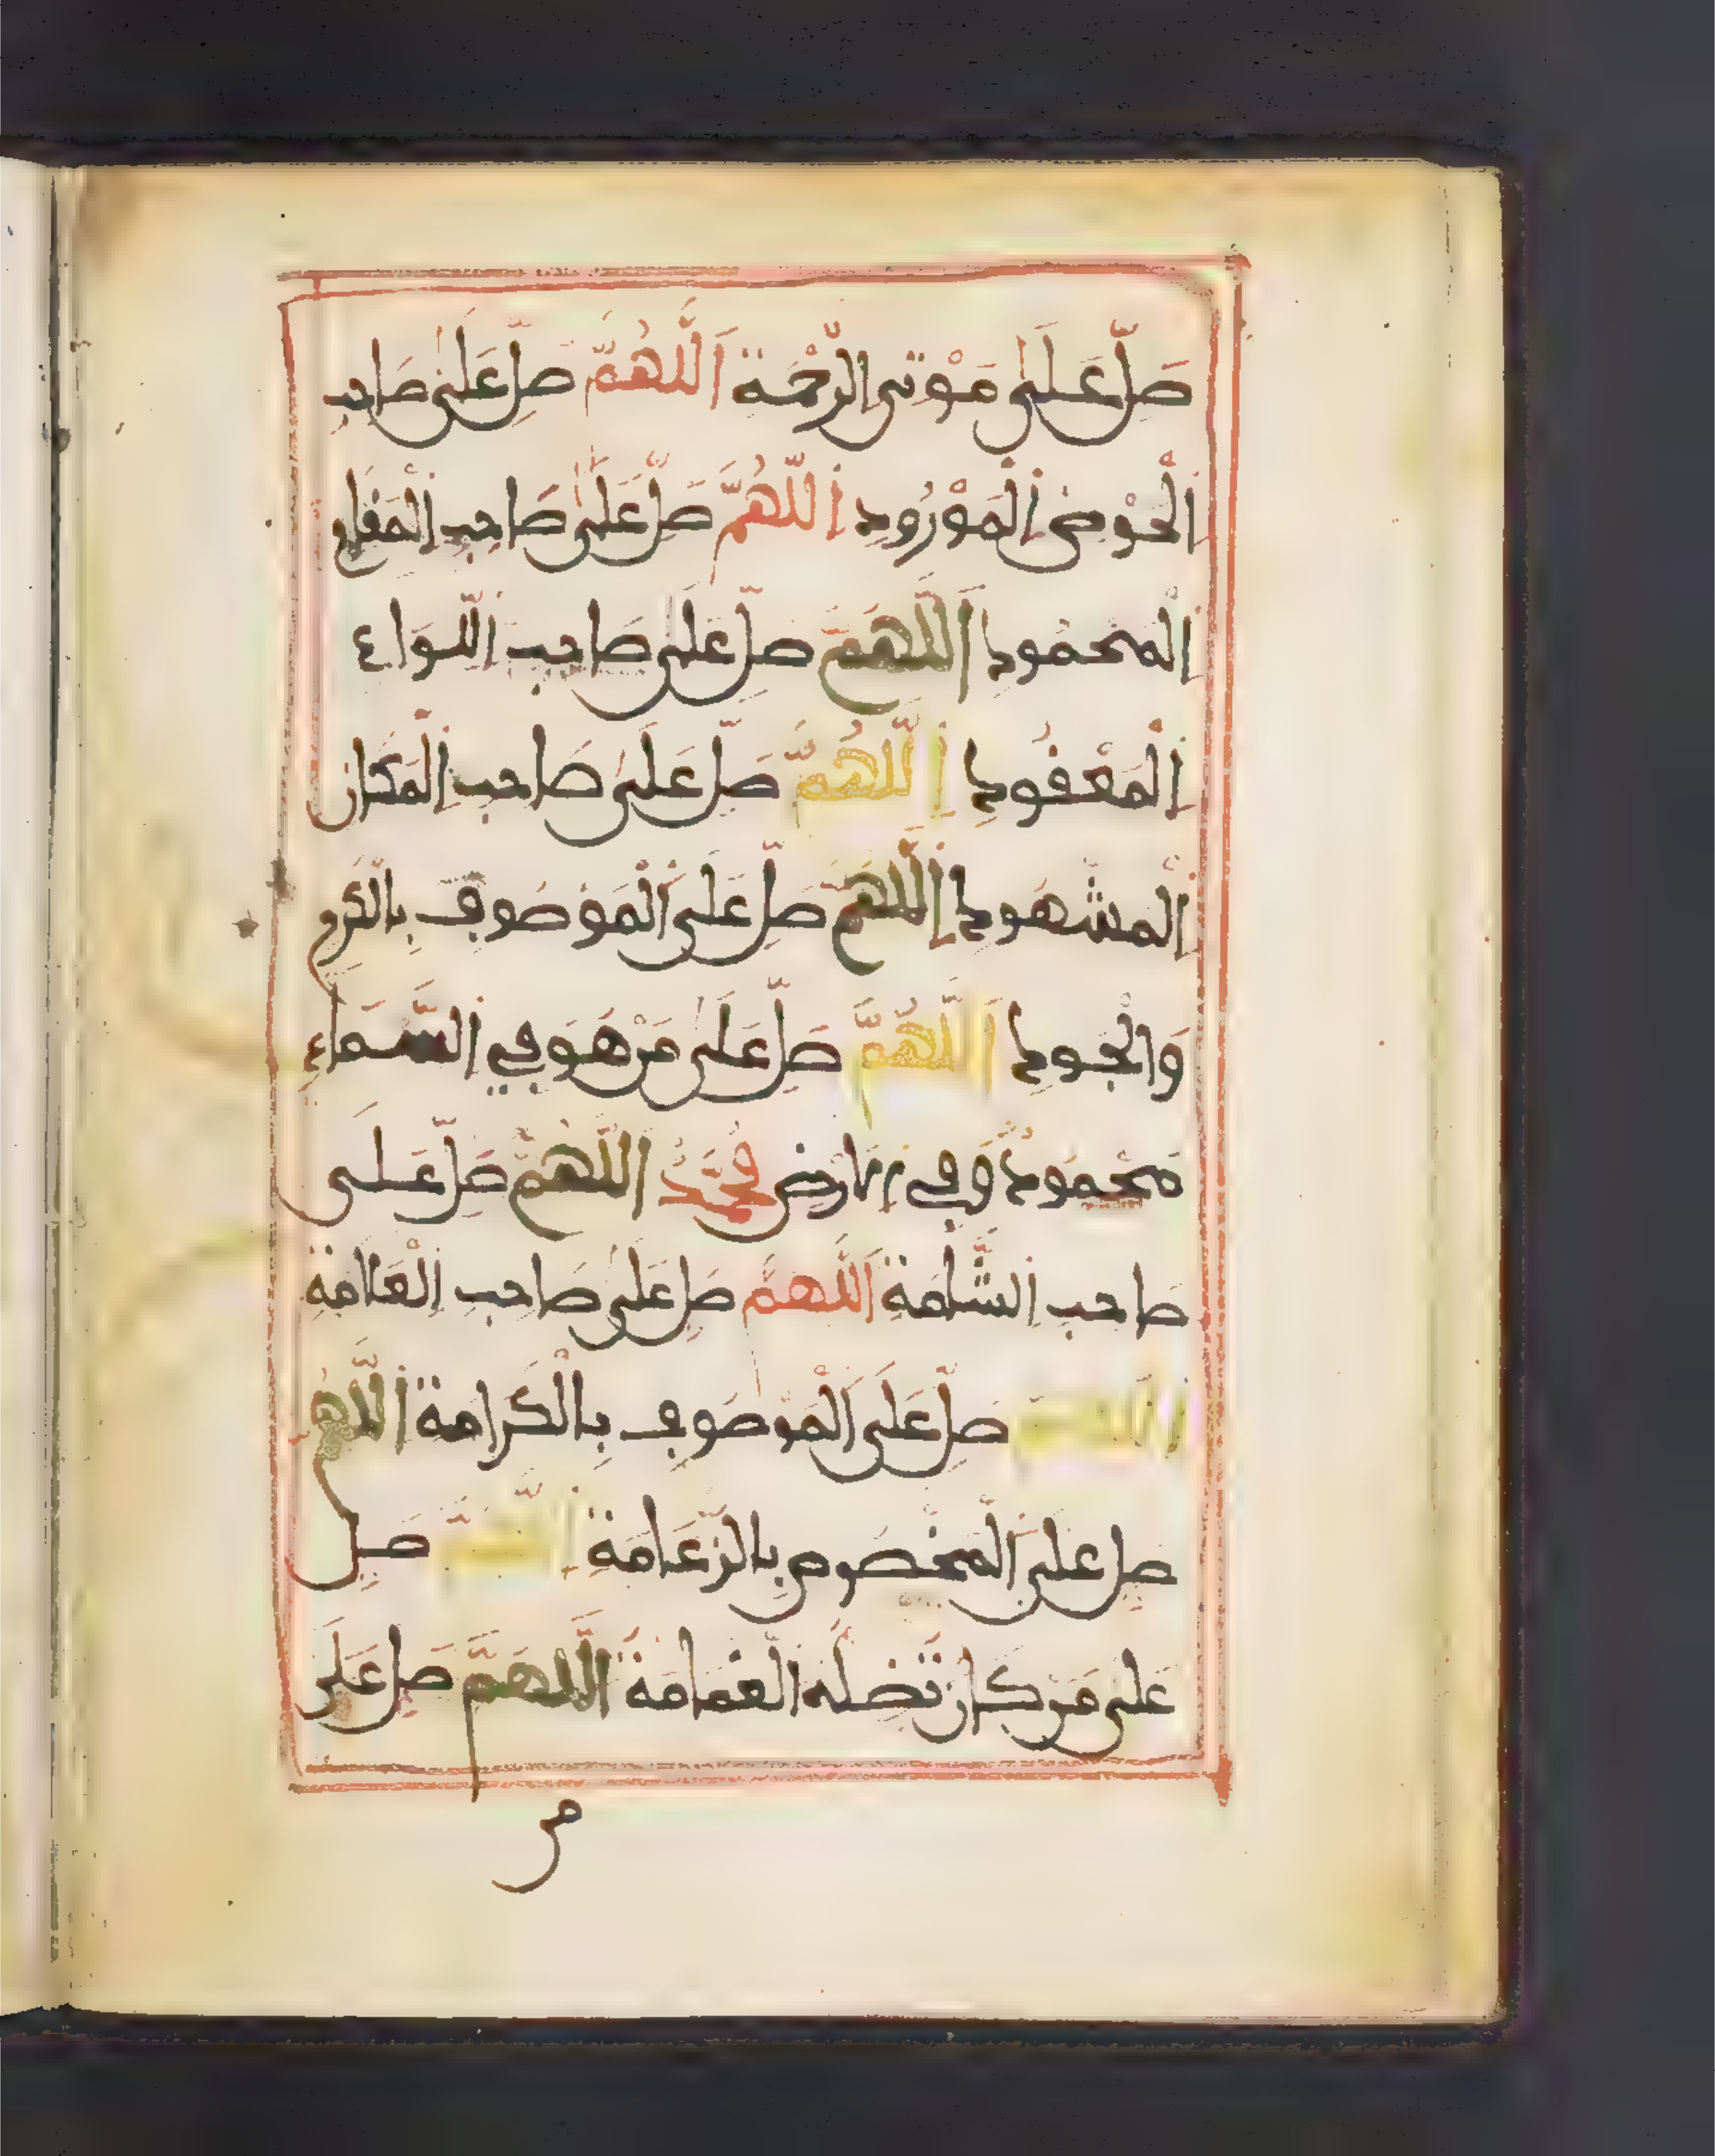 صَلِّ عَلَىٰ مَوْتىِ الرَّحْمَةِ اَللَّهُمَّ صَلِّ عَلَىٰ صَاحِبِ
اِلْحَوْضِ اِلْمَوْرُودِ اِللَّهُمَّ صَلِّ عَلَىٰ صَاحِبِ اِلْمَقَامِ
اِلْمَحْمُودِ اَللَّهُمَّ صَلِّ عَلَىٰ صَاحِبِ اِللِّوَاءِ
اِلْمَعْقُودِ اِللَّهُمَّ صَلِّ عَلَىٰ صَاحِبِ اِلْمَكَانِ
اِلْمَشْهُودِ اِللَّهُمَّ صَلِّ عَلَى اَلْمَوْصُوفِ بِالْكَرَمِ
وَالْجُودِ اَللَّهُمَّ صَلِّ عَلَىٰ مَنْ هُوَ فِي السَّمَاءِ
مَحْمُودٌ وَفِي اِلَارْضِ مُحَمَّدٌ اَللَّهُمَّ صَلِّ عَلَى
صَاحِبِ اِلشَّامَةِ اَللَّهُمَّ صَلِّ عَلَىٰ صَاحِبِ اِلْعَلَامَةِ
اَللَّهُمَّ صَلِّ عَلَى اَلْمَوْصُوفِ بِالْكَرَامَةِ اَللَّهُمَّ
صَلِّ عَلَى اَلْمَخْصُوصِ بِالزَّعَامَةِ اِللَّهُمَّ صَلِّ
عَلَىٰ مَنْ كَانَ تُضِلُّهُ الْغَمَامَةُ اَللَّهُمَّ صَلِّ عَلَىٰ
من